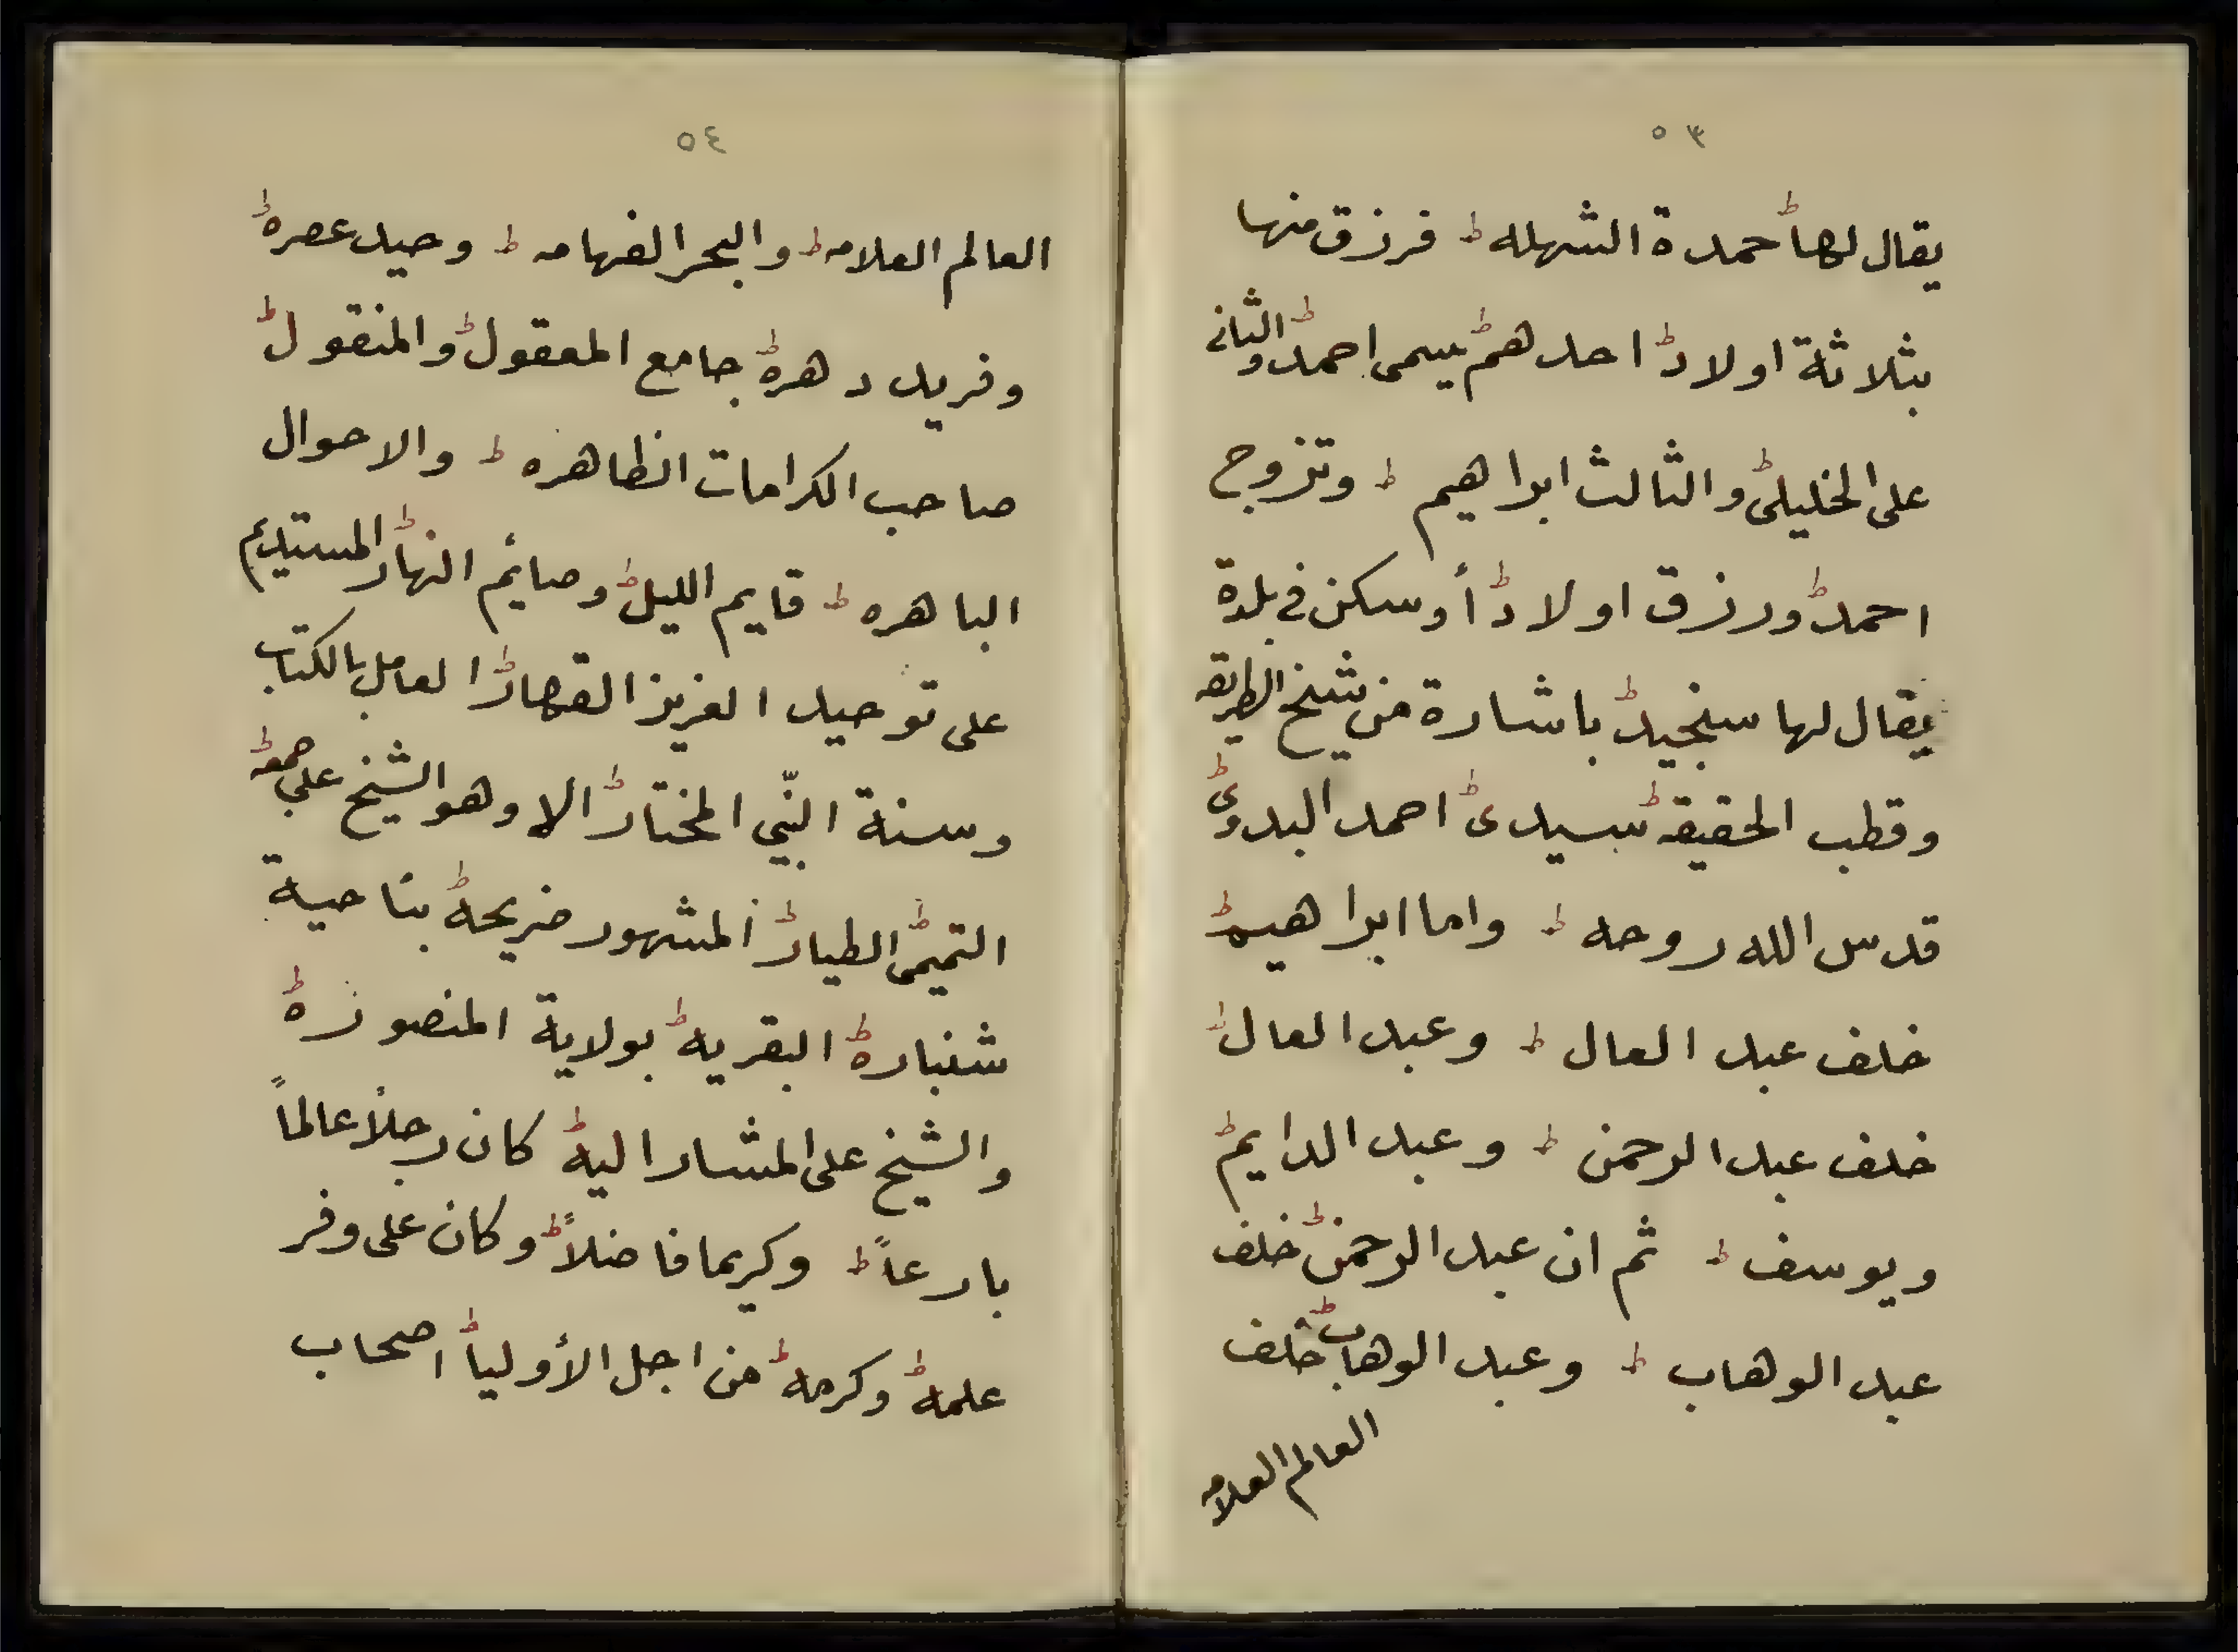 ٥٣
يقال لها حمدة الشهله ط فرزق منها
بثلاثة اولاد ط احدهم ط يسمى احمد ط والثانى
على الخليلى ط والثالث ابراهيم ط وتزوج
احمد ط ورزق اولاد ط أ وسكن فى بلدة
يقال لها سنجيد ط باشارة من شيخ الطريقه
وقطب الحقيقه ط سيدى ط احمد البدوى ط
قدس الله روحه ط واما ابراهيم ط
خلف عبد العال ط وعبد العال ط
خلف عبد الرحمن ط وعبد الدايم ط
ويوسف ط ثم ان عبد الرحمن ط خلف
عبد الوهاب ط وعبد الوهاب ط خلف
العالم العلامه
٥٤
العالم العلامه ط والبحر الفهامه ط وحيد عصره ط
وفريد دهره ط جامع المعقول ط والمنقول ط
صاحب الكرامات الظاهره ط والاحوال
الباهره ط قايم الليل ط وصائم النهار ط المستديم
على توحيد العزيز القهار ط العامل بالكتاب
وسنة النّبي المختار ط الا وهو الشيخ على جمعه ط
التميمى ط الطيار ط المشهور ضريحه ط بناحية
شنباره ط البقريه ط بولاية المنصوره ط
والشيخ على المشار اليه ط كان رجلاً عالماً
بارعاً ط وكريما فاضلاً ط وكان على وفر
علمه ط وكرمه ط من اجل الأوليا ط اصحاب